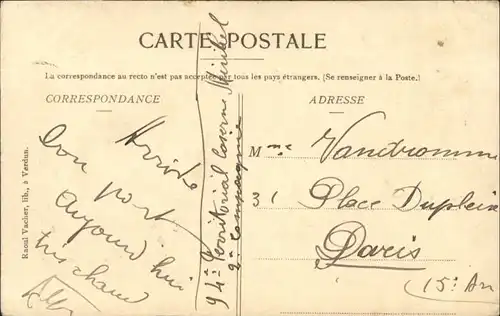 CARTE POSTALE
La correspondance au recto n'est pas acceptée par tous les pays étrangers. (Se renseigner à la Poste.)
CORRESPONDANCE
ADRESSE
Raoul Vacher, lib., à Verdun.
Arrivé
bon port
aujourd'hui
très chaud
94e Territorial Caserne Miribel
2e Compagnie
Mme Vandromme
31 Place Dupleix
Paris
15e Arr